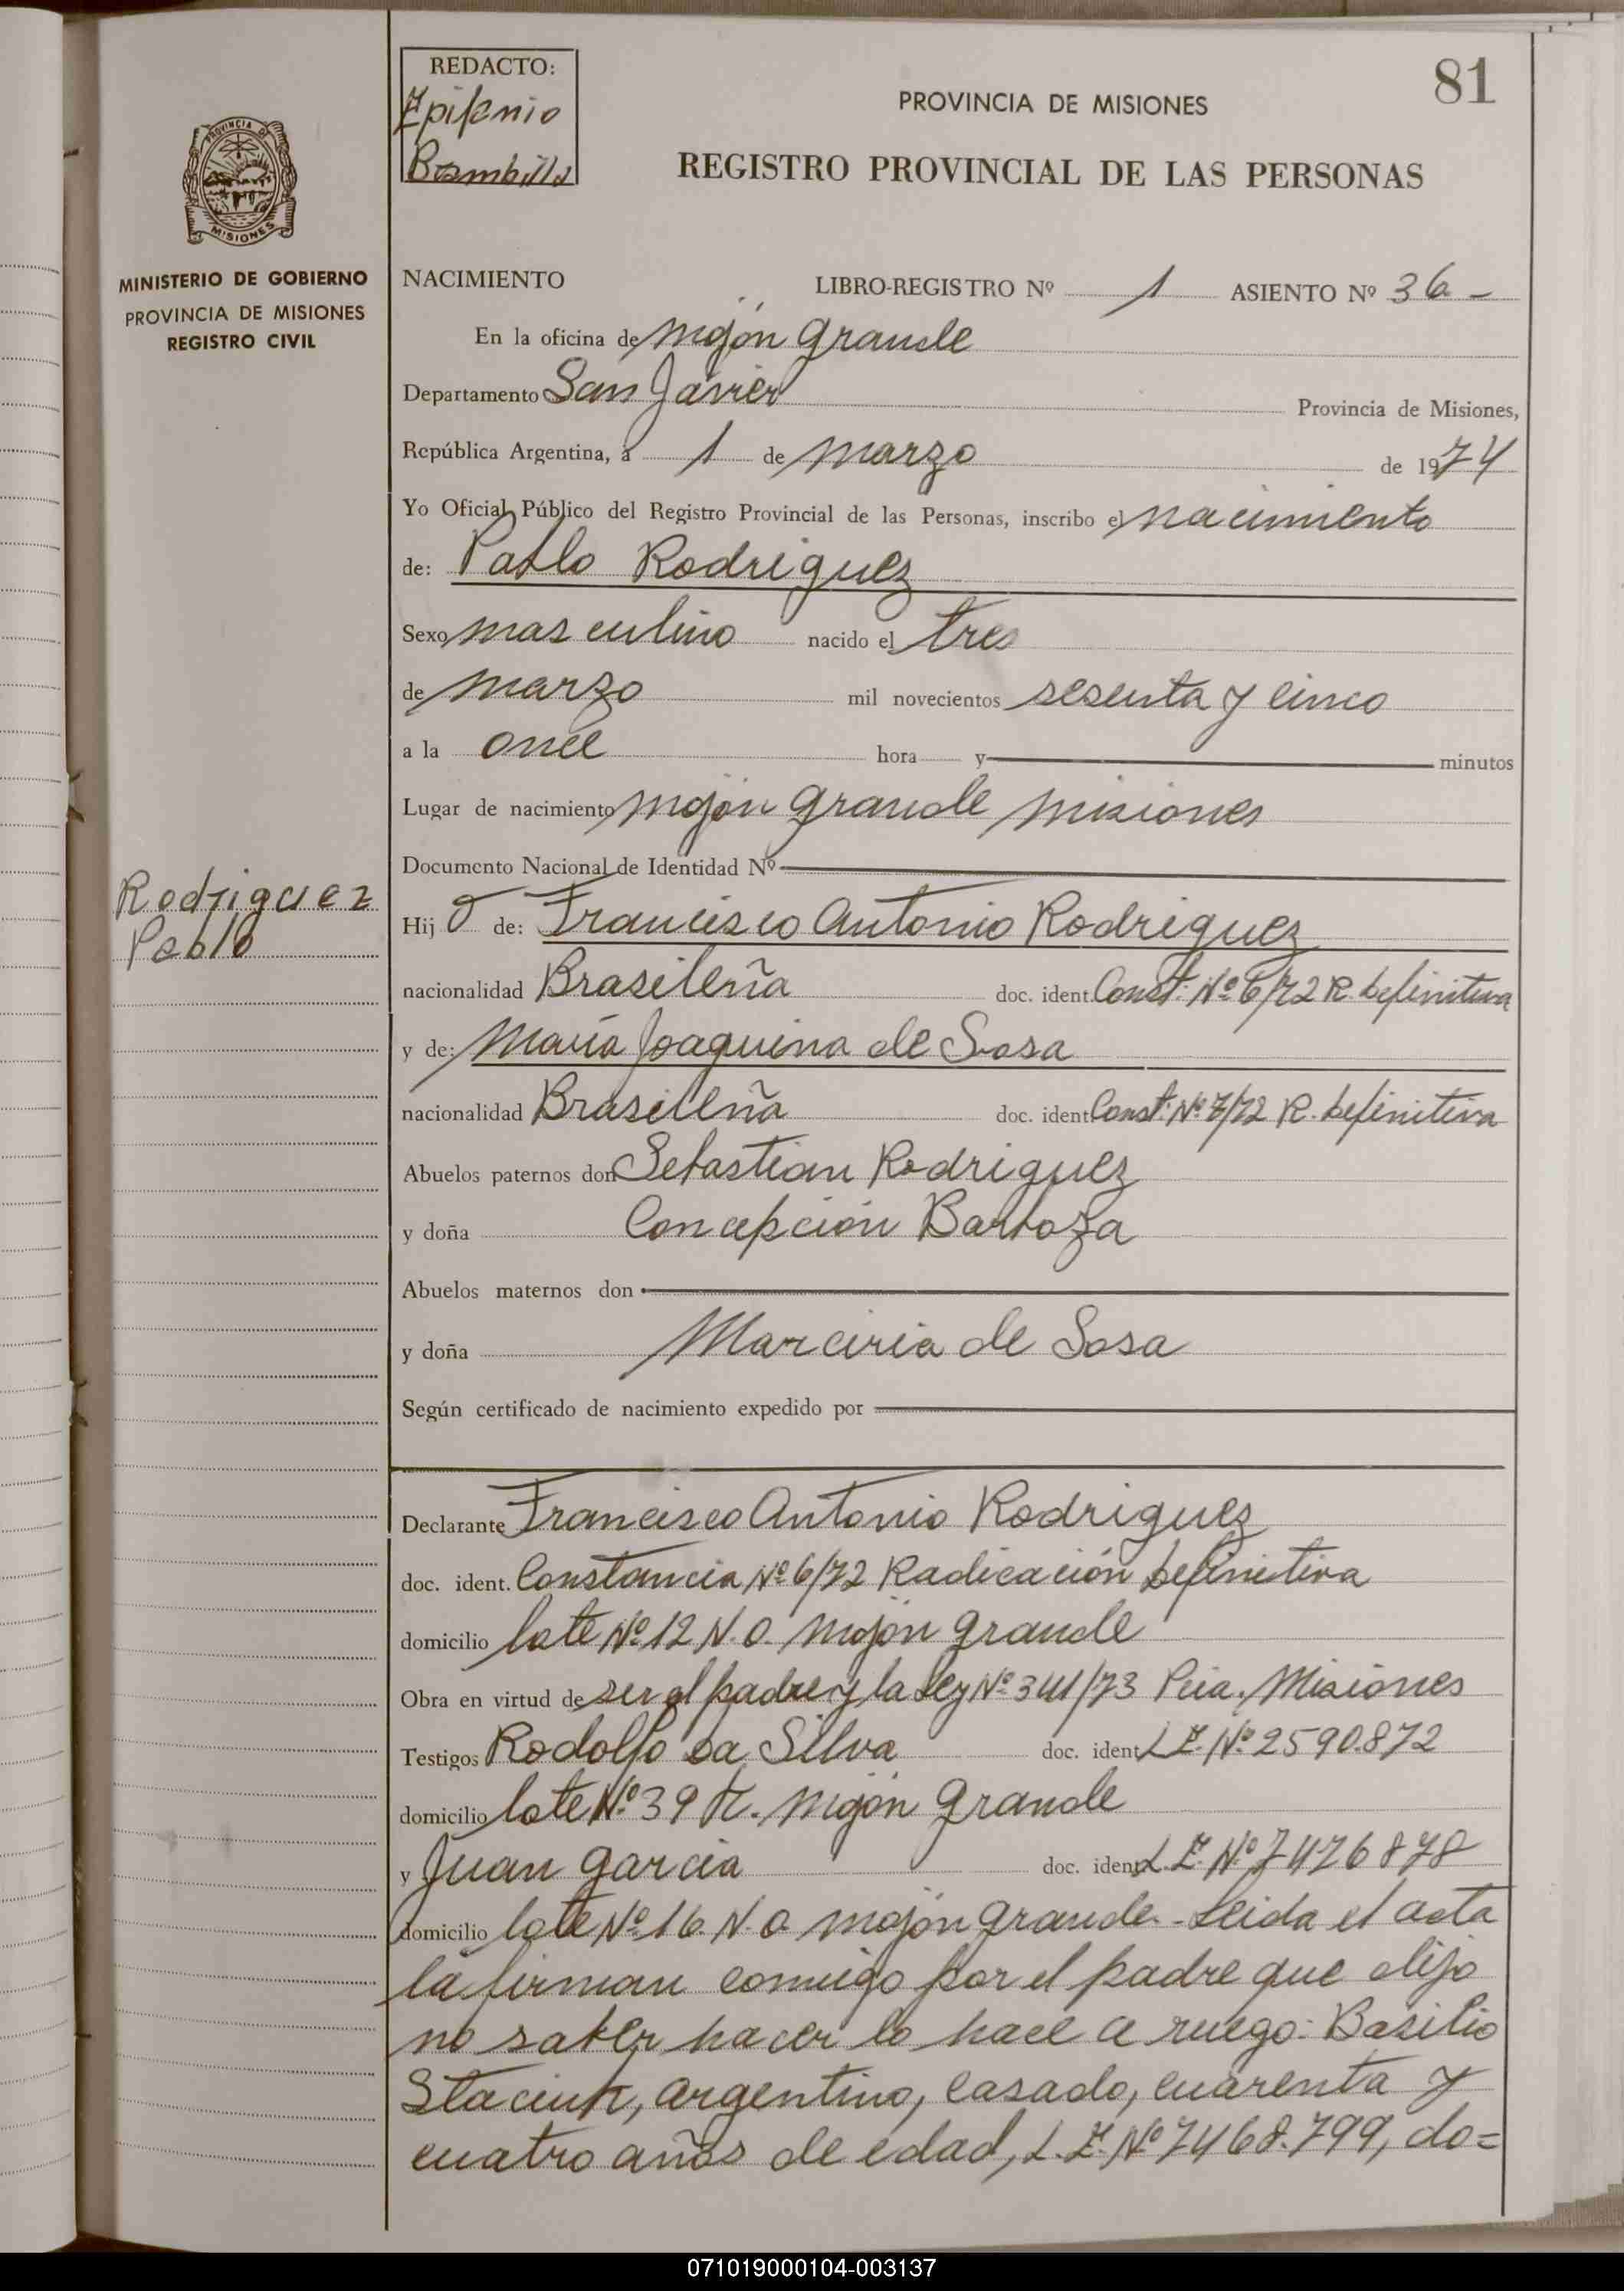 REDACTO:
Epifanio
Brambilla
81
PROVINCIA DE MISIONES
REGISTRO PROVINCIAL DE LAS PERSONAS
PROVINCIA DE
MISIONES
MINISTERIO DE GOBIERNO
PROVINCIA DE MISIONES
REGISTRO CIVIL
NACIMIENTO LIBRO-REGISTRO Nº 1 ASIENTO Nº 36-
En la oficina de Mojón Grande
Departamento San Javier Provincia de Misiones,
República Argentina, a 1 de Marzo de 1974
Yo Oficial Público del Registro Provincial de las Personas, inscribo el nacimiento
de: Pablo Rodriguez
Sexo masculino nacido el tres
de marzo mil novecientos sesenta y cinco
a la once hora y minutos
Lugar de nacimiento Mojón Grande Misiones
Documento Nacional de Identidad Nº
Rodriguez
Pablo
Hijo de: Francisco Antonio Rodriguez
nacionalidad Brasileña doc. ident. Const. Nº 6/72 R. Definitiva
y de: María Joaquina de Sosa
nacionalidad Brasileña doc. ident. Const. Nº 7/72 R. Definitiva
Abuelos paternos don Sebastian Rodriguez
y doña Concepción Barboza
Abuelos maternos don
y doña Marciria de Sosa
Según certificado de nacimiento expedido por
Declarante Francisco Antonio Rodriguez
doc. ident. Constancia Nº 6/72 Radicación Definitiva
domicilio lote Nº 12 N.O. Mojón Grande
Obra en virtud de ser el padre y la Ley Nº 341/73 Pcia. Misiones
Testigos Rodolfo Da Silva doc. ident L.E. Nº 2590.872
domicilio lote Nº 39 Mojón Grande
y Juan Garcia doc. ident L.E. Nº 7476878
domicilio lote Nº 16 N.O. Mojón Grande.- Leida el acta
la firman conmigo por el padre que dijo
no saber hacer lo hace a ruego: Basilio
Staciuk, argentino, casado, cuarenta y
cuatro años de edad, L.E. Nº 7468.799, do=
071019000104-003137